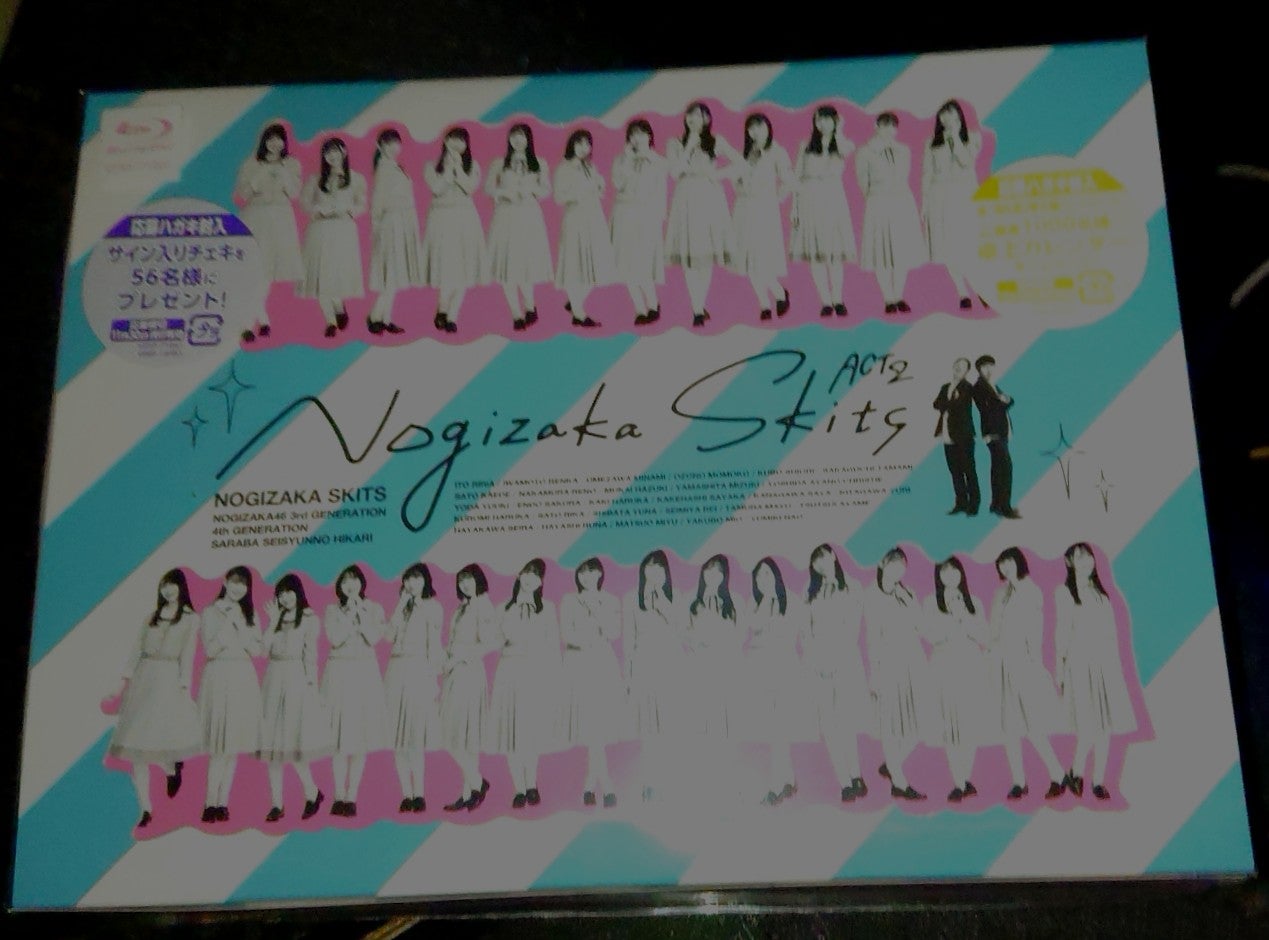 応募ハガキ封入
サイン入りチェキを
56名様に
プレゼント!
応募ハガキ封入
Nogizaka Skits ACT2
NOGIZAKA SKITS
NOGIZAKA46 3rd GENERATION
4th GENERATION
SARABA SEISYUNNO HIKARI
ITO RIRIA / IWAMOTO RENKA / UMEZAWA MINAMI / OZONO MOMOKO / KUBO SHIORI / SAKAGUCHI TAMAMI
SATO KAEDE / NAKAMURA RENO / MUKAI HAZUKI / YAMASHITA MIZUKI / YOSHIDA AYANO CHRISTIE
YODA YUUKI / ENDO SAKURA / KAKI HARUKA / KAKEHASHI SAYAKA / KANAGAWA SAYA / KITAGAWA YURI
KUROMI HARUKA / SATO RIKA / SHIBATA YUNA / SEIMIYA REI / TAMURA MAYU / TSUTSUI AYAME
HAYAKAWA SEIRA / HAYASHI RUNA / MATSUO MIYU / YAKUBO MIO / YUMIKI NAO